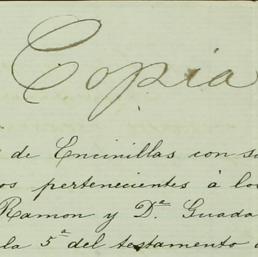 Copia
de Encinillas con s
os pertenecientes á lo
Ramon y D.ª Guada
la 5ª del testamento